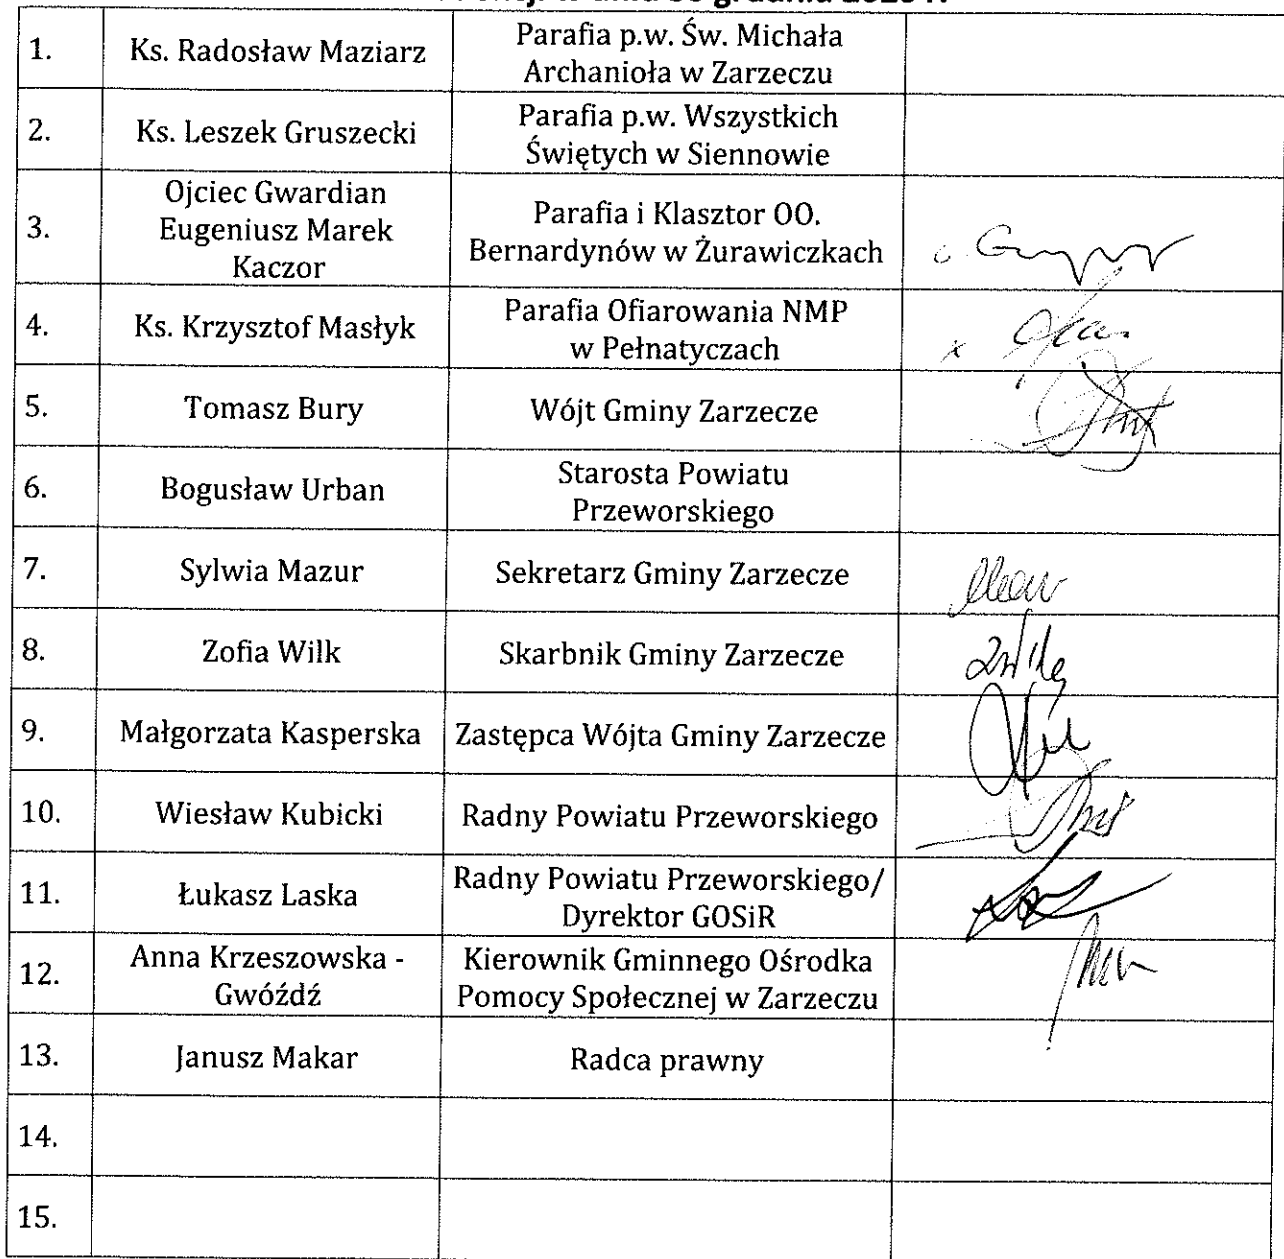 1.
Ks. Radosław Maziarz
Parafia p.w. Św. Michała
Archanioła w Zarzeczu
2.
Ks. Leszek Gruszecki
Parafia p.w. Wszystkich
Świętych w Siennowie
3.
Ojciec Gwardian
Eugeniusz Marek
Kaczor
Parafia i Klasztor OO.
Bernardynów w Żurawiczkach
4.
Ks. Krzysztof Masłyk
Parafia Ofiarowania NMP
w Pełnatyczach
x
5.
Tomasz Bury
Wójt Gminy Zarzecze
6.
Bogusław Urban
Starosta Powiatu
Przeworskiego
7.
Sylwia Mazur
Sekretarz Gminy Zarzecze
8.
Zofia Wilk
Skarbnik Gminy Zarzecze
9.
Małgorzata Kasperska
Zastępca Wójta Gminy Zarzecze
10.
Wiesław Kubicki
Radny Powiatu Przeworskiego
11.
Łukasz Laska
Radny Powiatu Przeworskiego/
Dyrektor GOSiR
12.
Anna Krzeszowska -
Gwóźdź
Kierownik Gminnego Ośrodka
Pomocy Społecznej w Zarzeczu
13.
Janusz Makar
Radca prawny
14.
15.